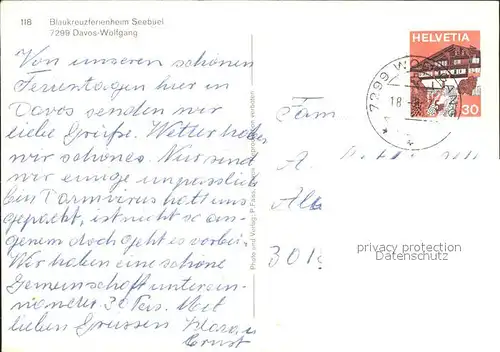 118 Blaukreuzferienheim Seebüel
7299 Davos-Wolfgang
HELVETIA
7299 WO
18
30
Von unseren schönen
Ferientagen hier in
Davos senden wir
liebe Grüsse. Wetter haben
wir schönes. Nur sind
wir einige unpässlich
ein Darmvirus hat uns
gepackt, ist nicht so an-
genem doch geht es vorbei.
Wir haben eine schöne
Gemeinschaft unterein-
nander 30 Pers. Mit
lieben Grüssen Klara u
Ernst
Fam
A.
301
Photo und Verlag: P. Fass, verboten
privacy protection
Datenschutz